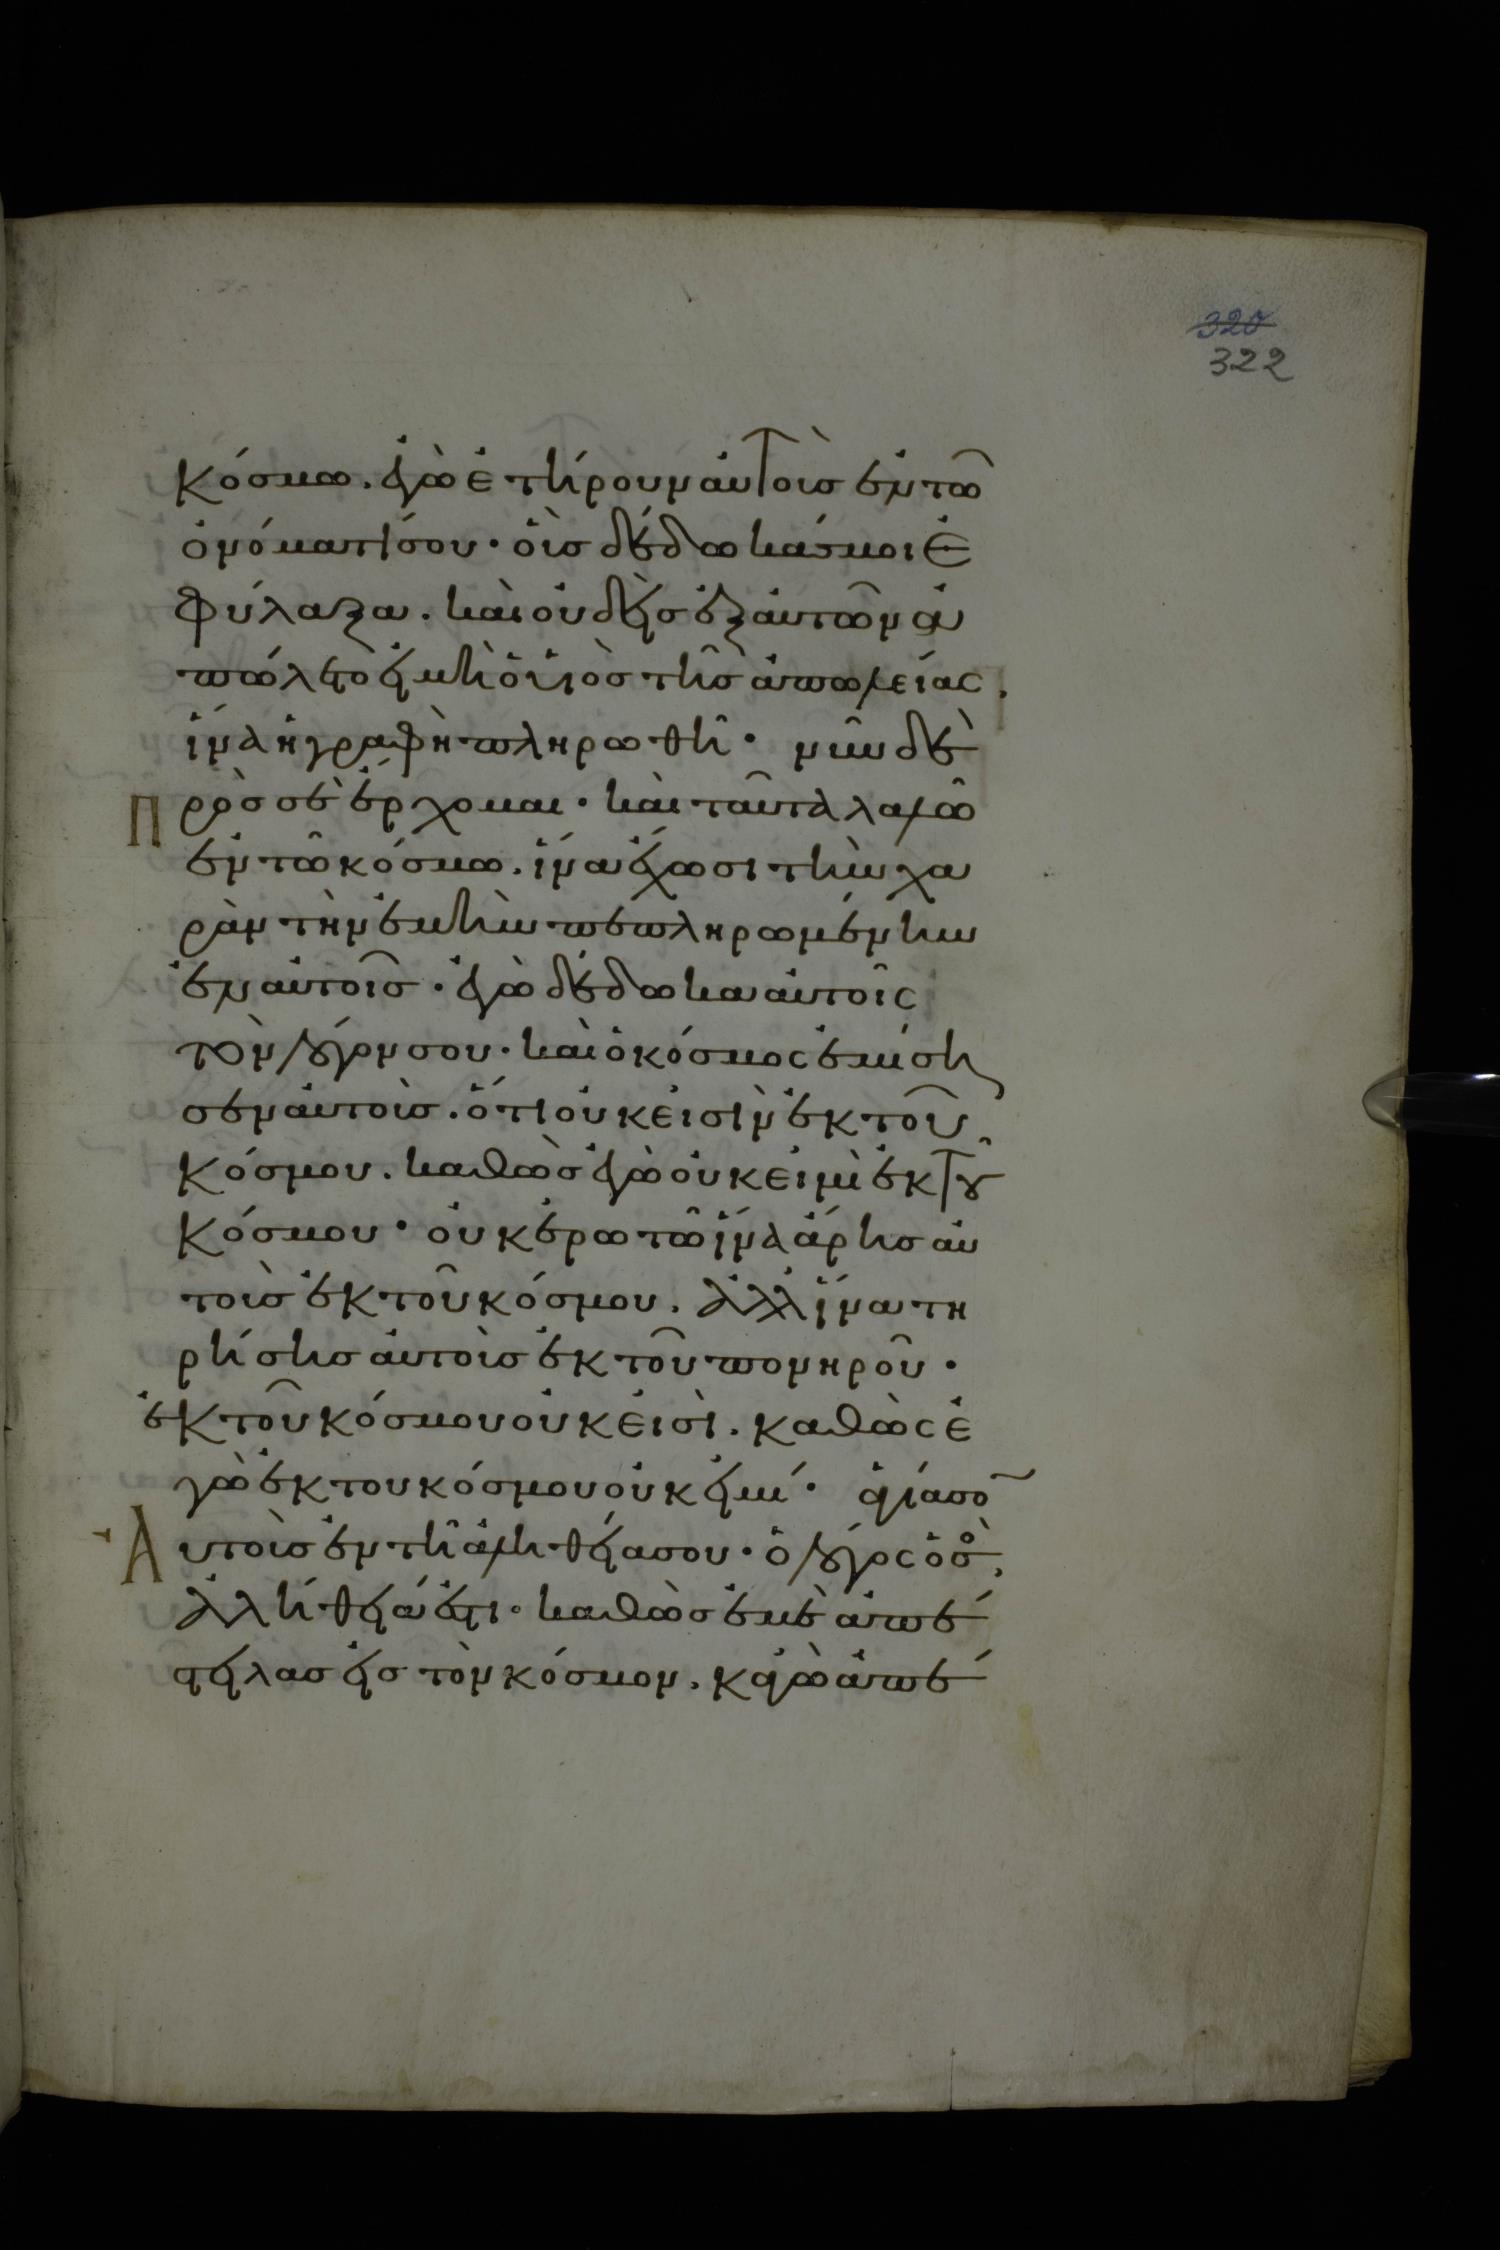 320
322
κόσμω. ἐγὼ ἐτήρουν αὐτοὺσ ἐν τῶ
ὀνόματί σου· οὓσ δέδωκάσ μοι ἐ
φύλαξα. καὶ οὐδεὶσ ἐξ αὐτῶν ἀ
πώλετο εἰ μὴ ὁ υἱὸσ τῆσ ἀπωλείας.
ἵνα ἡ γραφὴ πληρωθῆ· νῦν δὲ
Π ρὸσ σὲ ἔρχομαι· καὶ ταῦτα λαλῶ
ἐν τῶ κόσμω. ἵνα ἔχωσι τὴν χα
ρὰν τὴν ἐμὴν πεπληρωμένην
ἐν αὐτοῖσ· ἐγὼ δέδωκα αὐτοῖς
τὸν λόγον σου· καὶ ὁ κόσμος ἐμίση
σεν αὐτοὺσ. ὅτι οὐκ εἰσὶν ἐκ τοῦ
κόσμου. καθὼσ ἐγὼ οὐκ εἰμὶ ἐκ τοῦ
κόσμου· οὐκ ἐρωτῶ ἵνα ἄρησ αὐ
τοὺσ ἐκ τοῦ κόσμου. ἀλλ' ἵνα τη
ρήσησ αὐτοὺσ ἐκ τοῦ πονηροῦ·
ἐκ τοῦ κόσμου οὐκ εἰσὶ. καθὼς ἐ
γὼ ἐκ του κόσμου οὐκ εἰμί· ἁγίασο̄
Α ὐτοὺσ ἐν τῆ ἀληθεία σου· ὁ λόγος ὁ σὸσ
ἀλήθειά ἐστι· καθὼσ ἐμὲ ἀπέ
στειλασ εἰσ τὸν κόσμον. κἀγὼ ἀπέ